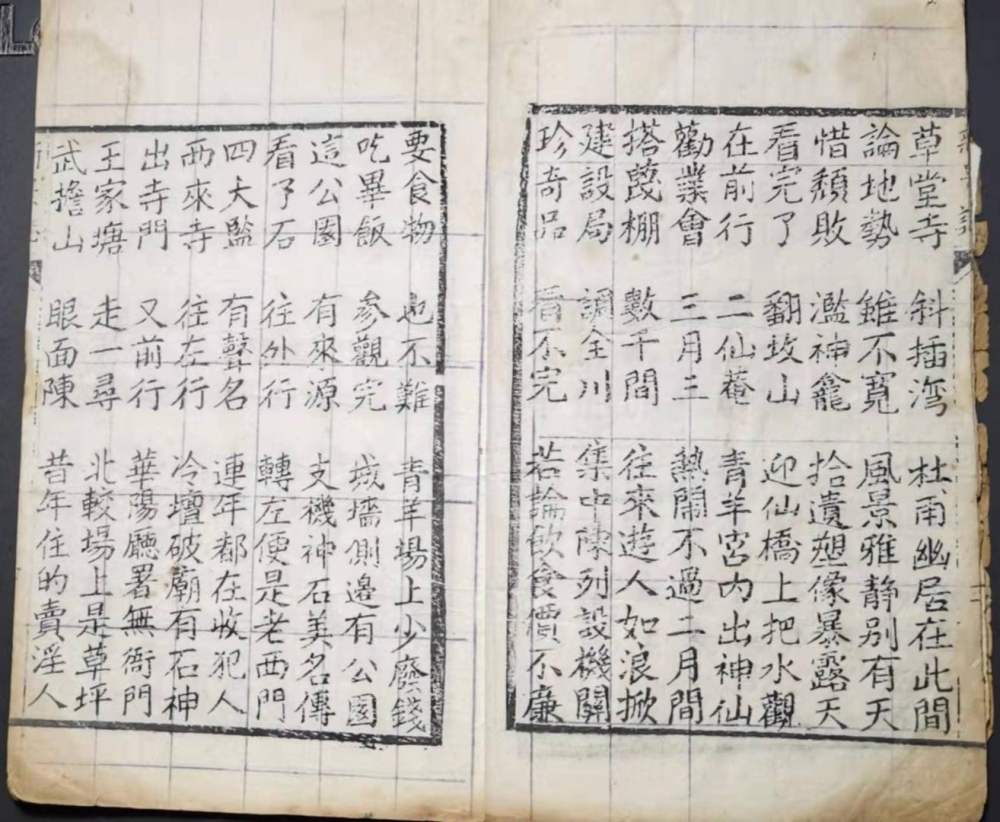 草堂寺 斜插湾 杜甫幽居在此間
論地勢 雖不寬 風景雅静别有天
惜頹敗 濫神龕 拾遺塑像暴露天
看完了 翻坟山 迎仙橋上把水觀
在前行 二仙菴 青羊宮内出神仙
勸業會 三月三 熱鬧不過二月間
搭篾棚 數千間 往來遊人如浪掀
建設局 調全川 集中陳列設機關
珍奇品 看不完 若論飲食價不廉
要食物 也不難 青羊場上少廢錢
吃畢飯 参觀完 城墻側邊有公園
這公園 有來源 支機神石美名傳
看了石 往外行 轉左便是老西門
四大監 有聲名 連年都在收犯人
西來寺 往左行 冷壇破廟有石神
出寺門 又前行 華陽廳署無衙門
王家塘 走一尋 北較場上是草坪
武擔山 眼面陳 昔年住的賣淫人